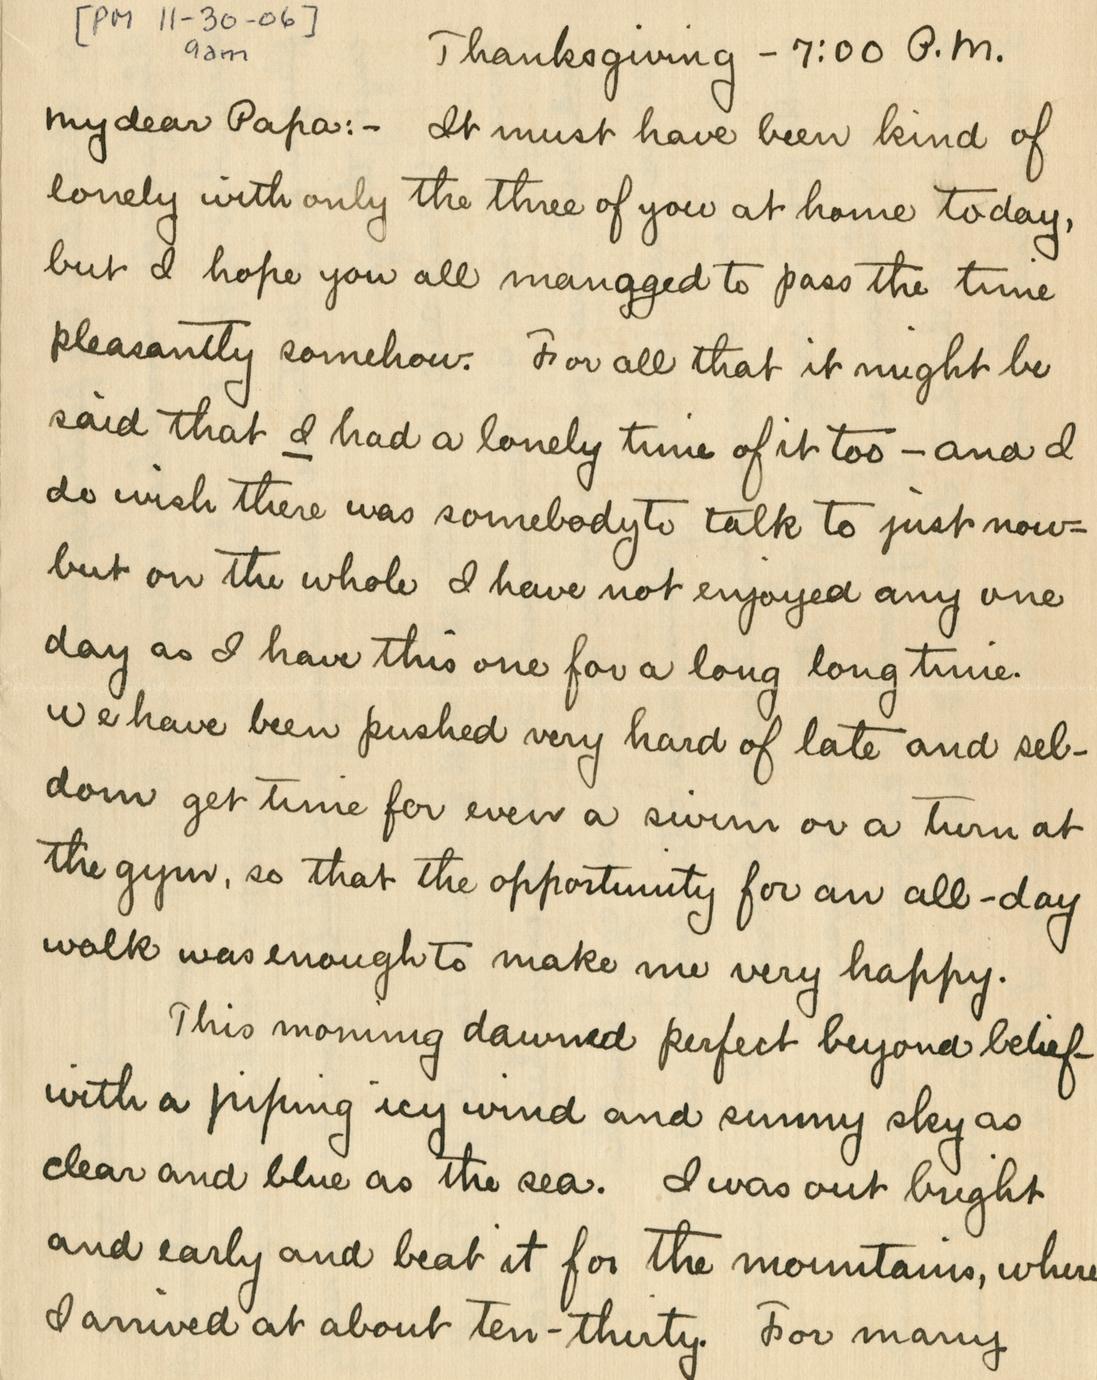 [PM 11-30-06]
9am
Thanksgiving - 7:00 P.M.
My dear Papa:- It must have been kind of
lonely with only the three of you at home today,
but I hope you all managged to pass the time
pleasantly somehow. For all that it might be
said that I had a lonely time of it too - and I
do wish there was somebody to talk to just now -
but on the whole I have not enjoyed any one
day as I have this one for a long long time.
We have been pushed very hard of late and sel-
dom get time for even a swim or a turn at
the gym, so that the opportunity for an all-day
walk was enough to make me very happy.
This morning dawned perfect beyond belief -
with a piping icy wind and sunny sky as
clear and blue as the sea. I was out bright
and early and beat it for the mountains, where
I arrived at about ten-thirty. For many